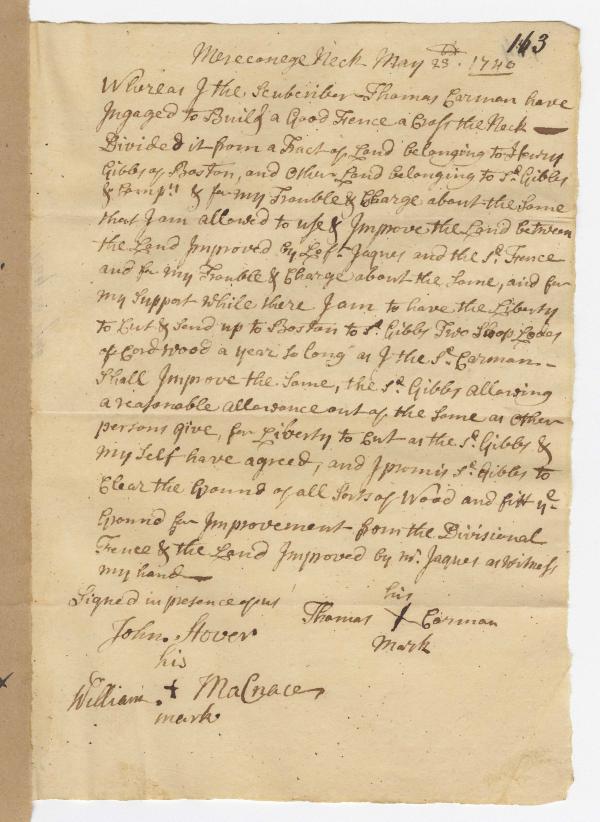 163
Mereconege Neck May 23d. 1740
Whereas I the Scubcriber Thomas Carman have
Ingaged to Build a Good Fence a Cross the Neck
Divided it from a Tract of Land belonging to Henry
Gibbs of Boston, and other Land belonging to Sd. Gibbs
& Comp.y & for my Trouble & Charge about the Same
that I am allowed to use & Improve the Land between
the Land Improved by Lef.t Jaques and the Sd. Fence
and for my Trouble & Charge about the Same, and for
my Support while there I am to have the Liberty
to Cut & Send up to Boston to Sd. Gibbs Two Sloop Lodes
of Cord Wood a year So long as I the Sd. Carman
Shall Improve the Same, the Sd. Gibbs allowing
a reasonable allowance out of the Same as other
persons give, for Liberty to Cut as the Sd. Gibbs &
my Self have agreed, and I promis Sd. Gibbs to
Clear the Ground of all Sorts of Wood and fitt ye.
Ground for Improvement from the Divisional
Fence & the Land Improved by mr. Jaques as witness
my hand
Signed in presence of us
his
Thomas X Carman
mark
John Stover
his
William + MaCnace
mark